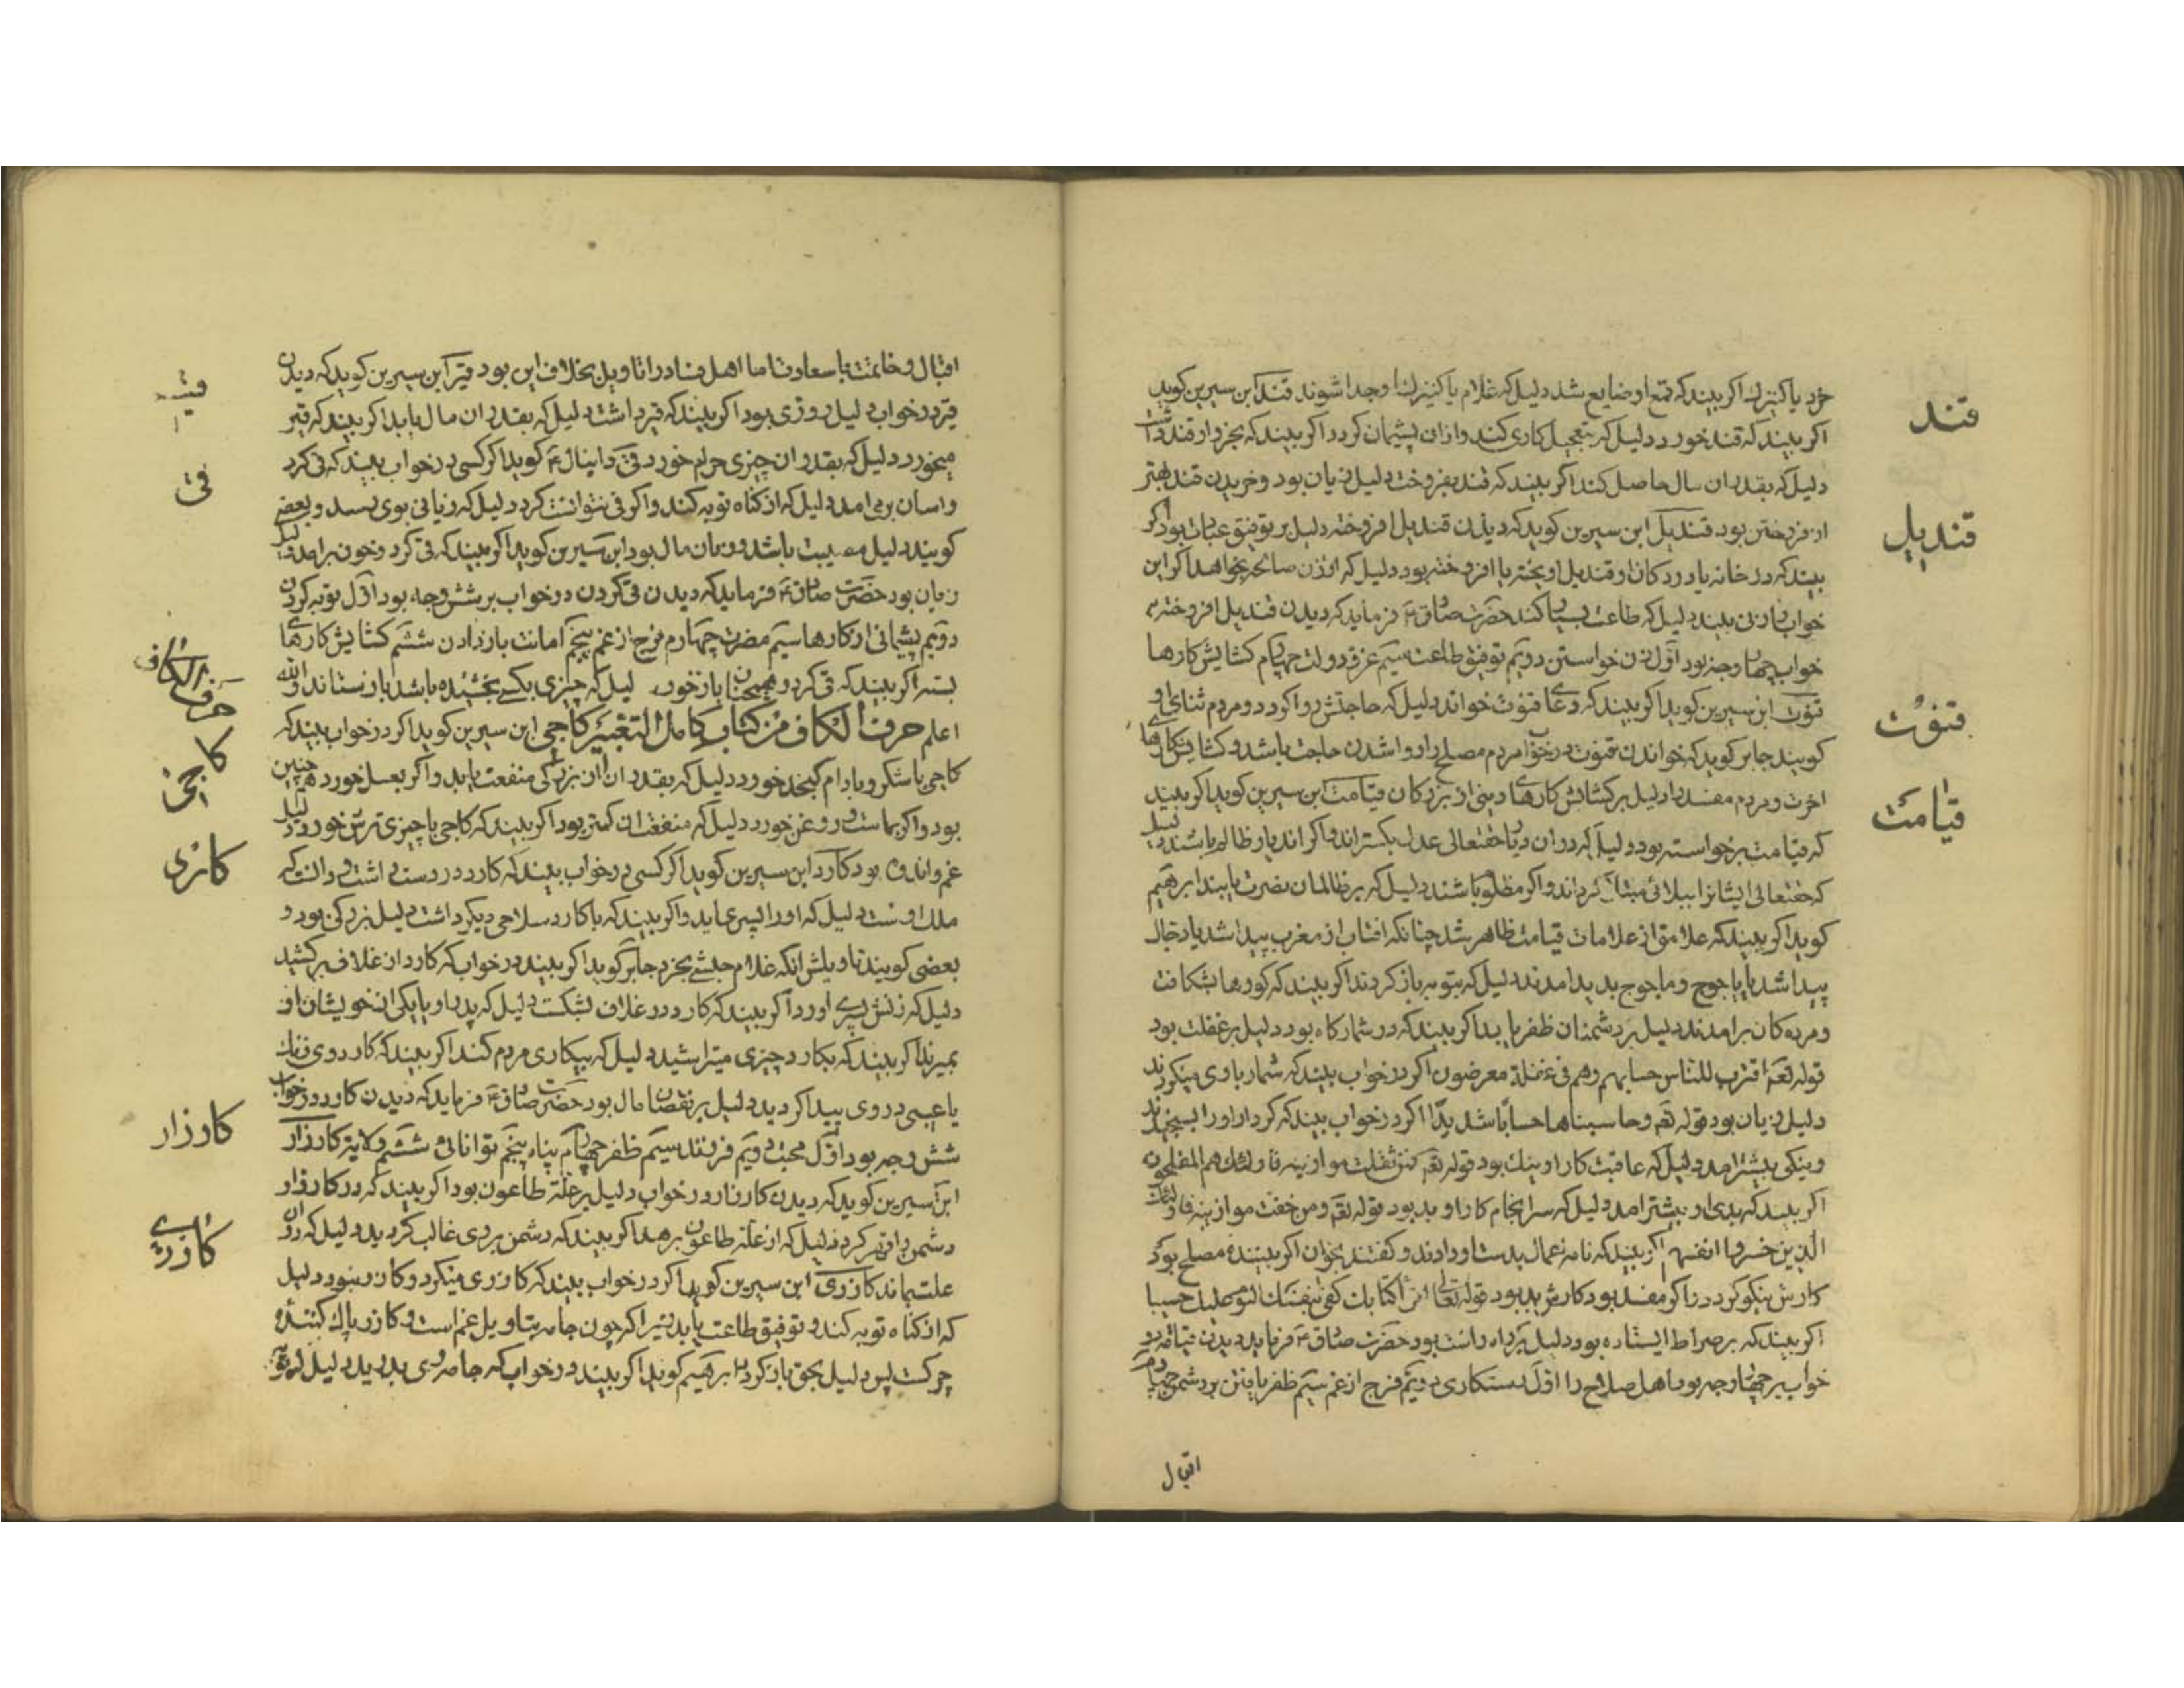 خرد یا کنیزك اکر بیند که قمع او ضایع شد دلیل که غلام یا کنیزك از او جدا شوند قند ابن سیرین کوید
قند
اکر بیند که قند خورد دلیل که بتعجیل کاری کند و ازان پشیمان کردد اکر بیند که بخروار قند داشت
دلیل که بقدر ان مال حاصل کند اکر بیند که قند بفروخت دلیل زیان بود و خریدن قند بهتر
از فروختن بود قندیل ابن سیرین کوید که دیدن قندیل افروخته دلیل بر توفیق عبادت بود اکر
قندیل
بیند که در خانه یا در دکان او قندیل اویخته یا افروخته بود دلیل که او زن صالحه بخواهد اکر این
خواب زنی بیند دلیل که طاعت بسیار کند حضرت صادق ع فرماید که دیدن قندیل افروخته
خواب چهار وجه بود اول زن خواستن دویم توفیق طاعت سیم عز و دولت چهارم کشایش کارها
قنوت ابن سیرین کوید اکر بیند که دعا قنوت خواند دلیل که حاجتش روا کردد و مردم ثنای او
قنوت
کویند جابر کوید که خواندن قنوت در خواب مردم مصلح را روا شدن حاجت باشد و کشایش کارهای
اخرت و مردم مفسد را دلیل بر کشایش کارهای دینی از بزرکان قیامت ابن سیرین کوید اکر بیند
قیامت
که قیامت برخواسته بود دلیل که در ان دیار حقتعالی عدل بکستراند و اکر اندیار ظالم باشند دلیل
که حقتعالی ایشانرا ببلائی مبتلا کرداند و اکر مظلوم باشند دلیل که بر ظالمان نصرت یابند ابرهیم
کوید اکر بیند که علامتی از علامات قیامت ظاهر شد چنانکه افتاب از مغرب پیدا شد یا دجال
پیدا شد یا یاجوج و ماجوج پدید امدند دلیل که بتوبه باز کردند اکر بیند که کورها بشکافت
و مرده کان برامدند دلیل بر دشمنان ظفر یابد اکر بیند که در شمارکاه بود دلیل بر غفلت بود
قوله تعم اقترب للناس حسابهم وهم فی غفلة معرضون اکر در خواب بیند که شمار با وی میکردند
دلیل زیان بود قوله تعم وحاسبناها حسابا شدیدا اکر در خواب بیند که کردار او را بسنجیدند
و نیکی بیشتر امد دلیل که عاقبت کار او نیك بود قوله تعم فمن ثقلت موازینه فاولئك هم المفلحون
اکر بیند که بدی او بیشتر امد دلیل که سرانجام کار او بد بود قوله تعم ومن خفت موازینه فاولئك
الذین خسروا انفسهم اکر بیند که نامه اعمال بدست او دادند و کفتند بخوان اکر بیننده مصلح بود
کارش نیکو کردد و اکر مفسد بود کارش بد بود قوله تعالی اقرأ کتابك کفی بنفسك الیوم علیك حسیبا
اکر بیند که بر صراط ایستاده بود دلیل بر راه راست بود حضرت صادق ع فرماید دیدن قیامت در
خواب بر چهار وجه بود اهل صلاح را اول رستکاری دویم فرج از غم سیم ظفر یافتن بر دشمن چهارم
اقبال
اقبال و خاتمت با سعادت اما اهل فساد را تاویل بخلاف این بود قیر ابن سیرین کوید که دیدن
قیر
قیر در خواب دلیل روزی بود اکر بیند که قیر داشت دلیل که بقدر ان مال یابد اکر بیند که قیر
میخورد دلیل که بقدر ان چیزی حرام خورد قی دانیال ع کوید اکر کسی در خواب بیند که قی کرد
قی
و اسان برمی امد دلیل که از کناه توبه کند و اکر قی نتوانست کرد دلیل که زیانی بوی رسد و بعضی
کویند دلیل مصیبت باشد و زیان مال بود ابن سیرین کوید اکر بیند که قی کرد و خون برامد دلیل
زیان بود حضرت صادق ع فرماید که دیدن قی کردن در خواب بر شش وجه بود اول توبه کردن
دویم پشیمانی از کارها سیم مضرت چهارم فرج از غم پنجم امانت باز دادن ششم کشایش کارهای
بسته اکر بیند که قی کرد و همچنان باز خورد دلیل که چیزی بکسی بخشیده باشد باز ستاند والله
اعلم حرف الکاف من کتاب کامل التعبیر کاجی ابن سیرین کوید اکر در خواب بیند که
حرف الکاف
کاجی
کاجی با شکر و بادام کنجد خورد دلیل که بقدر ان از بزرکی منفعت یابد و اکر بعسل خورد همچنین
بود و اکر بماست و روغن خورد دلیل که منفعت ان کمتر بود اکر بیند که کاجی با چیزی ترش خورد دلیل
غم و اندوه بود کارد ابن سیرین کوید اکر کسی در خواب بیند که کارد در دست داشت و دانست که
ملك اوست دلیل که او را پسر عاید و اکر بیند که با کارد سلاحی دیکر داشت دلیل بزرکی بود و
بعضی کویند تاویلش انکه غلام حبشی بخرد جابر کوید اکر بیند در خواب که کارد از غلاف برکشید
دلیل که زنش پسری اورد اکر بیند که کارد در غلاف بشکست دلیل که پدر او یا یکی از خویشان او
بمیرند اکر بیند که بکارد چیزی میتراشید دلیل که بیکاری مردم کند اکر بیند که کارد وی زنك
یا عیبی در وی پیدا کردید دلیل بر نقصان مال بود حضرت صادق ع فرماید که دیدن کارد در خواب
شش وجه بود اول محبت دویم فرزند سیم ظفر چهارم پناه پنجم توانائی ششم ولایة کارزار
کارزار
ابن سیرین کوید که دیدن کارزار در خواب دلیل بر علة طاعون بود اکر بیند که در کارزار
دشمن را قهر کرد دلیل که از علة طاعون برهد اکر بیند که دشمن بر وی غالب کردید دلیل که در ان
علت بماند کازری ابن سیرین کوید اکر در خواب بیند که کازری میکرد و کازر نبود دلیل
که از کناه توبه کند و توفیق طاعت یابد زیرا که چون جامه بتاویل غم است و کازر پاك کننده
چرکست پس دلیل بحق باز کردد ابرهیم کوید اکر بیند در خواب که جامه وی بدرید دلیل